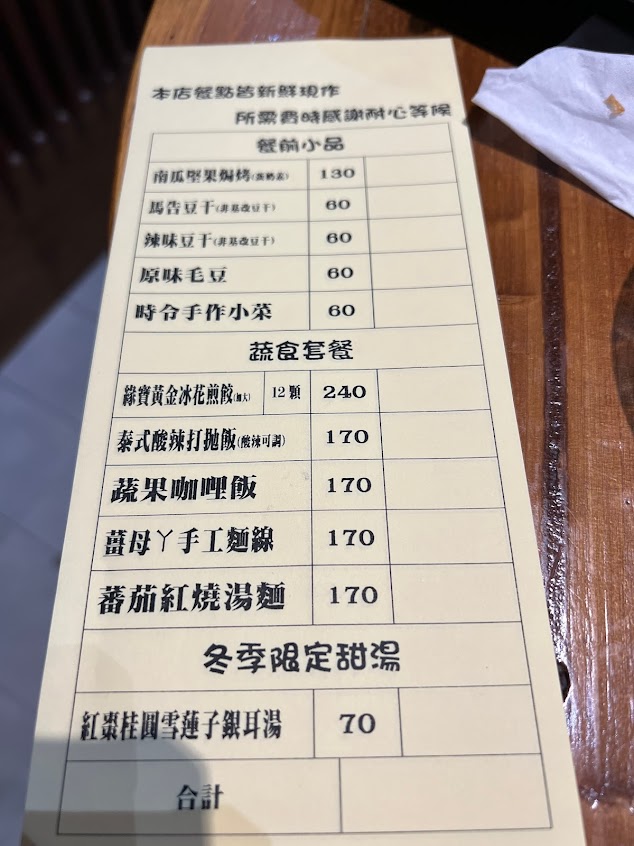 本店餐點皆新鮮現作
所需費時感謝耐心等候
餐前小品
南瓜堅果焗烤(蛋奶素) 130
馬告豆干(非基改豆干) 60
辣味豆干(非基改豆干) 60
原味毛豆 60
時令手作小菜 60
蔬食套餐
綠寶黃金冰花煎餃(加大) 12顆 240
泰式酸辣打拋飯(酸辣可調) 170
蔬果咖哩飯 170
薑母ㄚ手工麵線 170
蕃茄紅燒湯麵 170
冬季限定甜湯
紅棗桂圓雪蓮子銀耳湯 70
合計